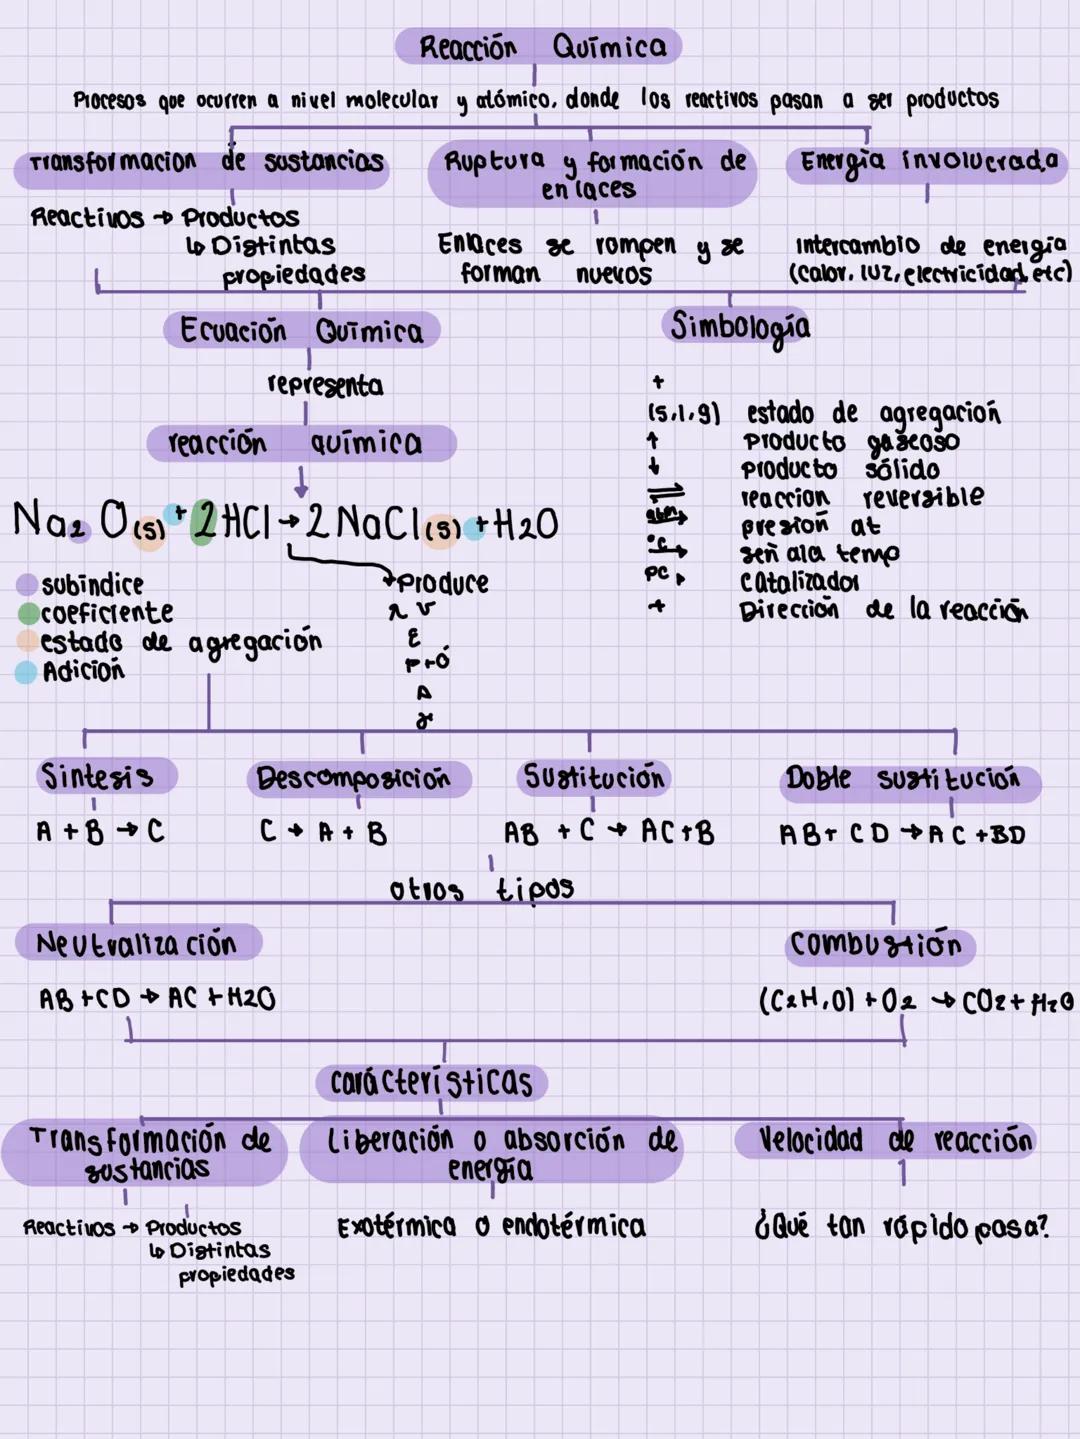 Reacción Química
Procesos que ocurren a nivel molecular y atómico, donde los reactivos pasan a ser productos
Transformacion de sustancias
Reactivos → Productos
↳ Distintas
propiedades
Ruptura y formación de
enlaces
Enlaces se rompen y se
forman nuevos
Energía involucrada
Intercambio de energía
(calor, luz, electricidad, etc)
Ecuación Química
representa
reacción química
Na2O(s) + 2HCl → 2NaCl(s) + H2O
produce
subindice
coeficiente
estado de agregación
Adición
Simbología
+
(s,l,g) estado de agregación
↑ producto gaseoso
↓ producto sólido
⇌ reaccion reversible
atm→ presión at
°C→ señala temp
PC→ catalizador
→ Dirección de la reacción
Sintesis
A + B → C
Descomposición
C → A + B
Sustitución
AB + C → AC + B
Doble sustitución
AB + CD → AC + BD
otros tipos
Neutralización
AB + CD → AC + H2O
Combustión
(C2H,O) + O2 → CO2 + H2O
carácterísticas
Transformación de
sustancias
Reactivos → Productos
↳ Distintas
propiedades
Liberación o absorción de
energía
Exotérmica o endotérmica
Velocidad de reacción
¿Qué tan rápido pasa?